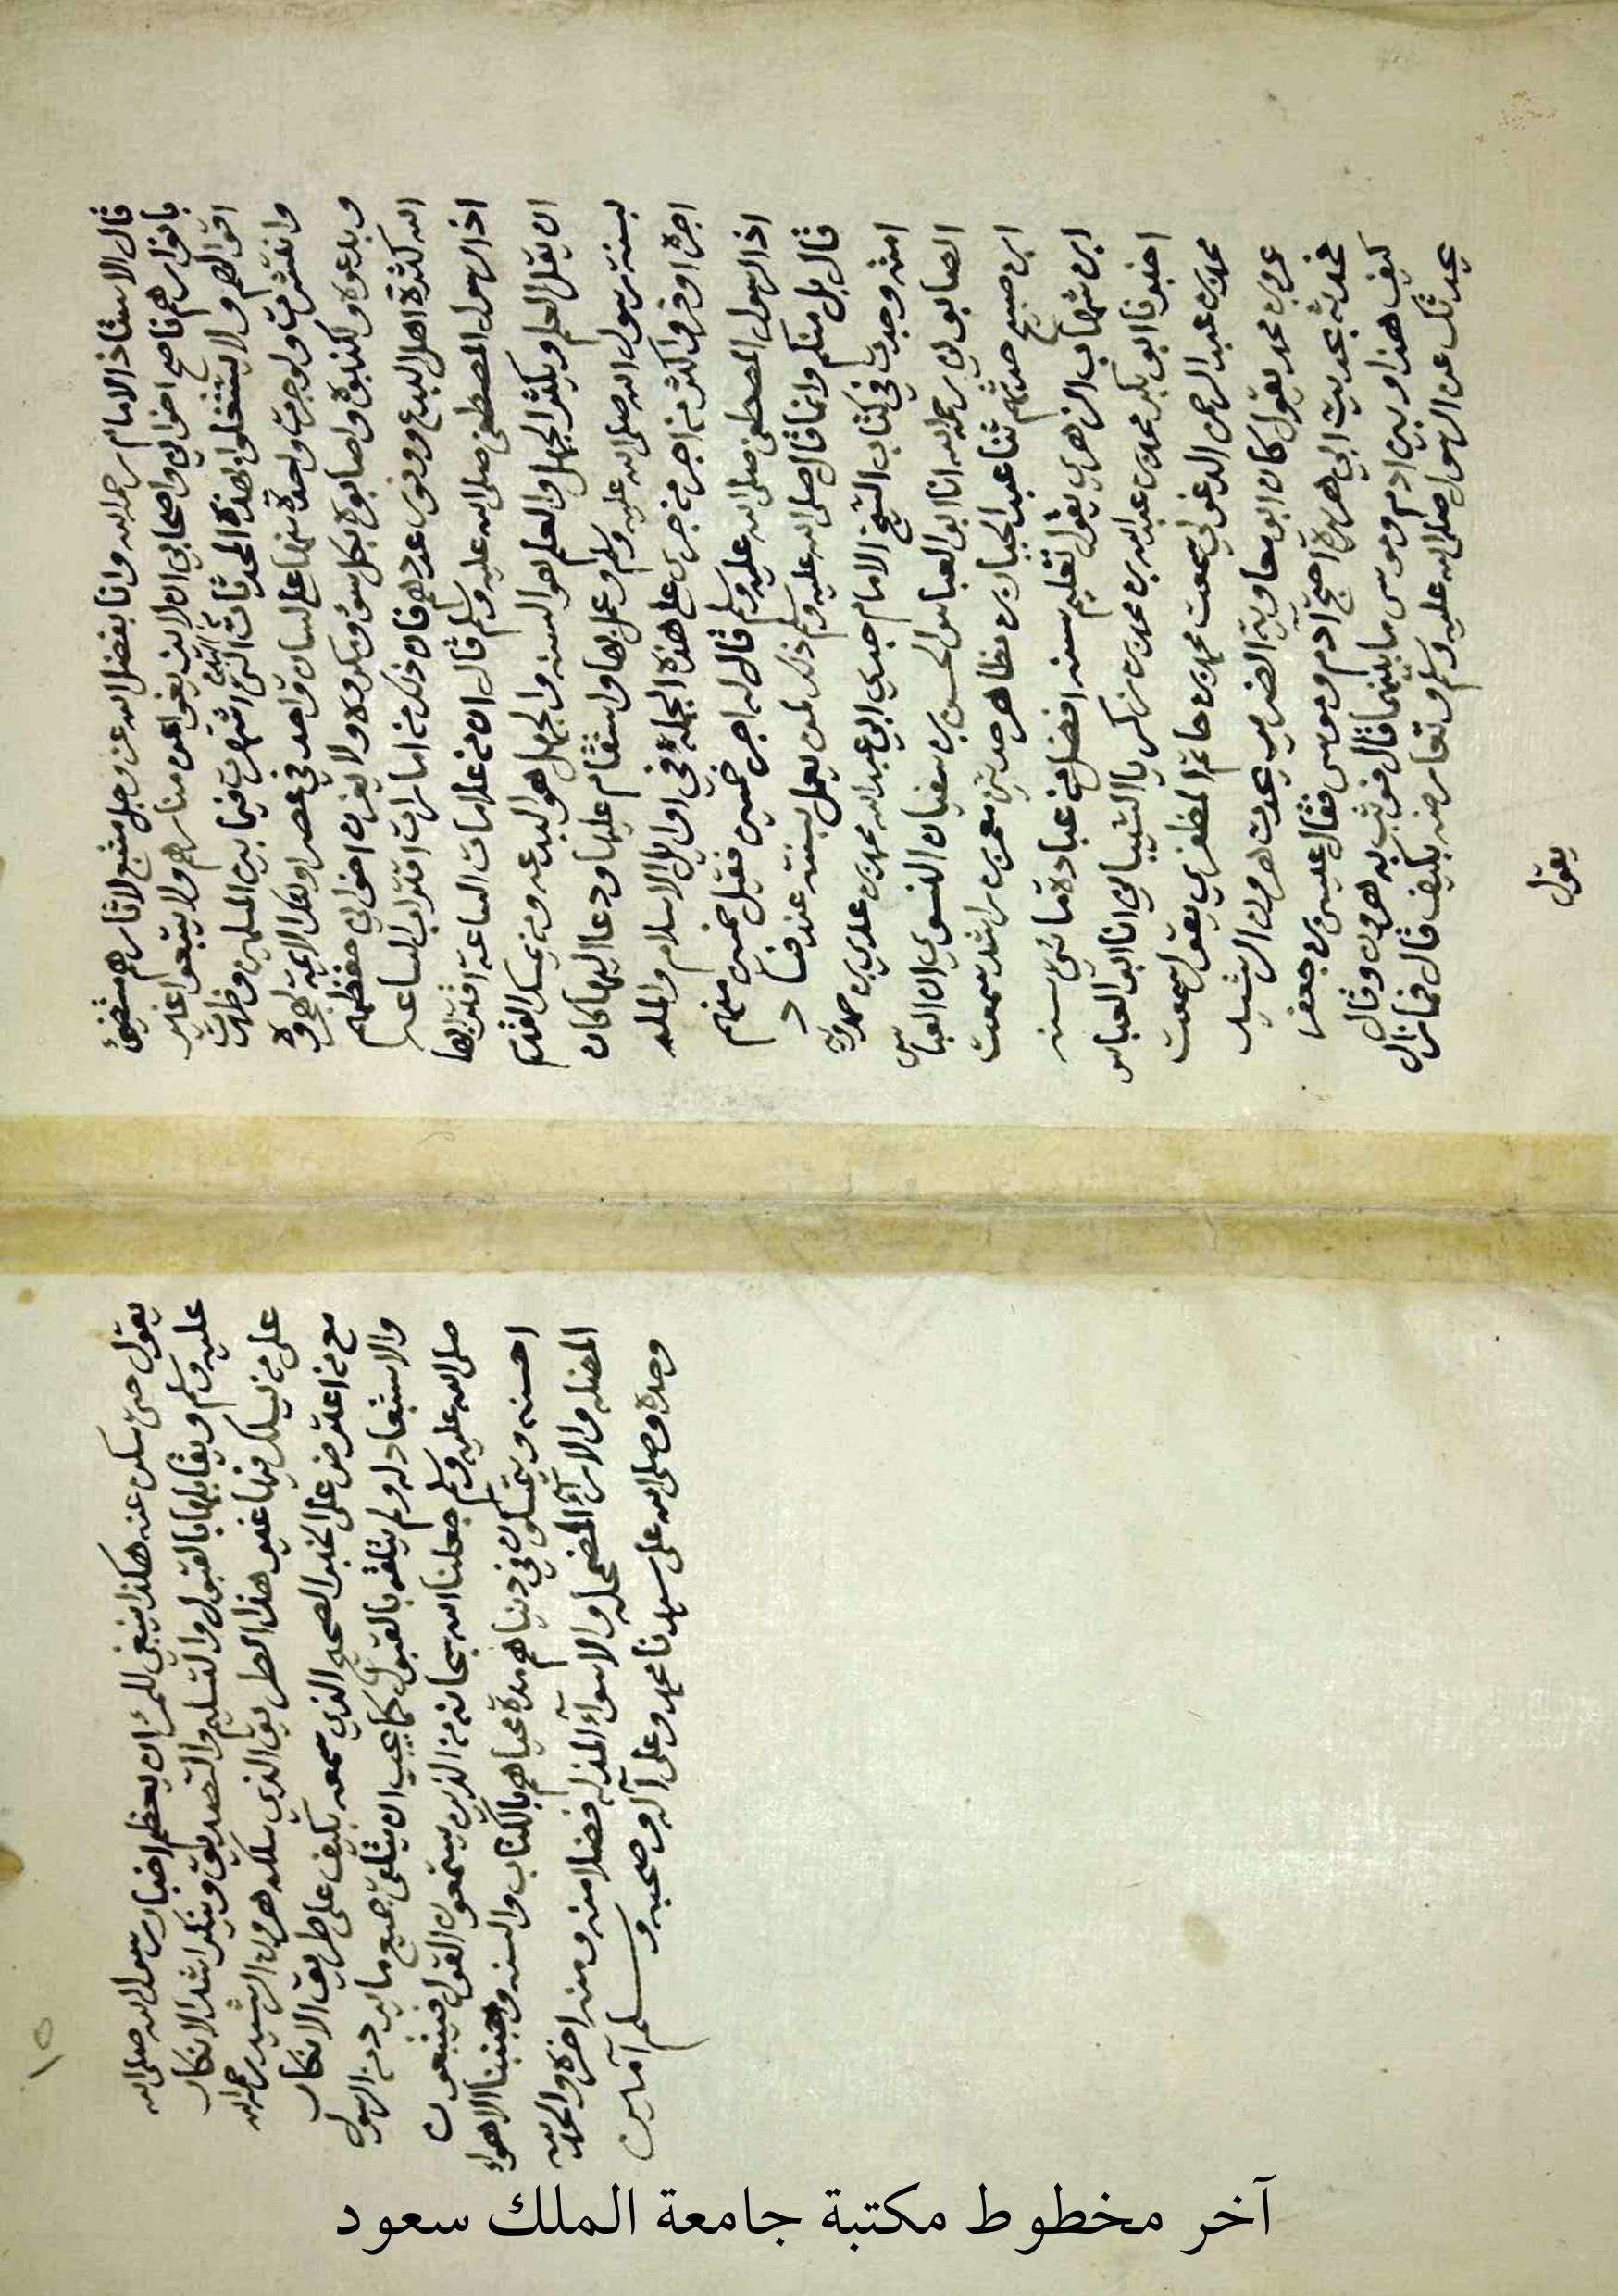 قال الاستاذ الامام رحمه الله وانا بفضل الله عز وجل متبع لاثارهم مستضئ
بانوارهم ناصح اخواني واصحابي ان لا يزيغوا عن منارهم ولا يتبعوا غير
اقوالهم ولا يشتغلوا بهذه المحدثات التي اشتهرت فيما بين المسلمين وظهرت
وانتشرت ولو جرت واحدة منها على لسان واحد في عصر اولئك الايمة لهجروه
وبدعوه ولكذبوه واصابوه بكل سوء ومكروه ولا يغرن اخواني حفظهم
الله كثرة اهل البدع ووفور عددهم فان ذلك من امارات اقتراب الساعه
اذ الرسول المصطفى صلى الله عليه وسلم قال ان من علامات الساعة اقترابها
ان يقل العلم ويكثر الجهل والعلم هو السنه والجهل هو البدعه ومن تمسك اليوم
بسنة رسول الله صلى الله عليه وسلم وعمل بها واستقام عليها ودعا اليها كان
اجره اوفر واكثر من اجر من جرى على هذه الجملة في اوايل الاسلام والمله
اذ الرسول المصطفى صلى الله عليه وسلم قال له اجر خمسين فقيل خمسين منهم
قال بل منكم وانما قال صلى الله عليه وسلم ذلك لمن يعمل بسنته عند فساد
امته وجدت في كتاب الشيخ الامام جدي ابي عبد الله محمد بن عدي بن حمدويه
الصابوني رحمه الله انا ابو العباس الحسن بن سفيان النسوي ان العباس
ابن صبيح حدثهم ثنا عبد الجبار بن مظاهر حدثني معمر بن راشد سمعت
ابن شهاب الزهري يقول تعليم سنه افضل من عبادة مائتي سنه
اخبرنا ابو بكر محمد بن عبد الله بن محمد بن زكريا الشيباني انا ابو العباس
محمد بن عبد الرحمن الدغولي سمعت محمد بن حاتم المظفري يقول سمعت
عمرو بن محمد يقول كان ابو معاوية الضرير يحدث هرون الرشيد
فحدثه بحديث ابي هريرة احتج آدم وموسى فقال عيسى بن جعفر
كيف هذا وبين ادم وموسى ما بينهما قال فوثب به هرون وقال
يحدثك عن الرسول صلى الله عليه وسلم وتعارضه بكيف قال فما زال
يقول
يقول حتى سكت عنه هكذا ينبغي للمرء ان يعظم اخبار رسول الله صلى الله
عليه وسلم ويقابلها بالقبول والتسليم والتصديق وينكر اشد الانكار
على من يسلك فيها غير هذا الطريق الذي سلكه هرون الرشيد رحمه الله
مع من اعترض على الخبر الصحيح الذي سمعه بكيف على طريق الانكار
والاستبعاد له ولم يتلقه بالقبول كما يجب ان يتلقى جميع ما يرد من الرسول
صلى الله عليه وسلم جعلنا الله سبحانه من الذين يستمعون القول فيتبعون
احسنه ويتمسكون في دنياهم مدة محياهم بالكتاب والسنه وجنبنا الاهواء
المضله والاراء المضمحله والاسواء المذله فضلا منه ومنه اخره والحمد لله
وحده وصلى الله على سيدنا محمد وعلى آله وصحبه وسلم آمين
١٥
آخر مخطوط مكتبة جامعة الملك سعود